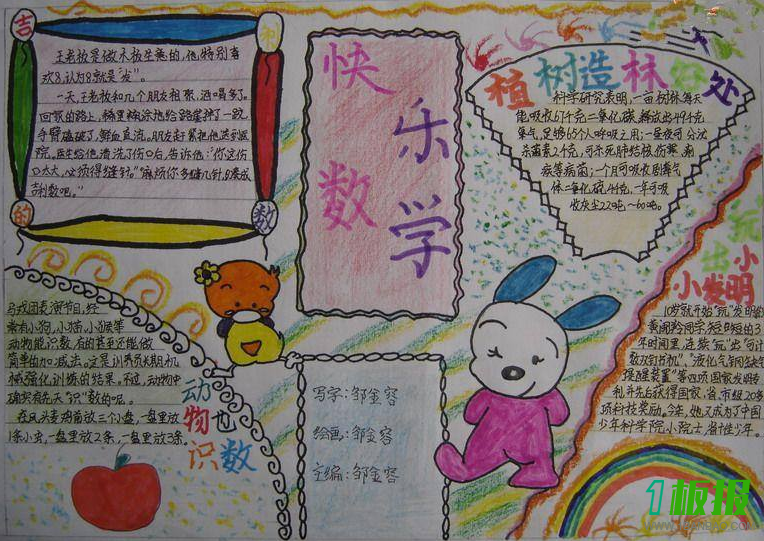 吉利的数
王老板是做木板生意的,他特别喜
欢8,认为8就是"发"。
一天,王老板和几个朋友相聚,酒喝多了。
回家的路上,稀里糊涂地给路崖拌了一跤
手臂磕破了,鲜血直流。朋友赶紧把他送到医
院。医生给他清洗了伤口后,告诉他:"你这伤
口太大,必须得缝针。""麻烦你多缝几针,8凑成
吉利数吧。"
快乐数学
植树造林好处
科学研究表明,一亩树林,每天
能吸收67千克二氧化碳,释放出49千克
氧气,足够65人呼吸之用;一昼夜可分泌
杀菌素2千克,可杀死肺结核、伤寒、痢
疾等病菌;一个月可吸收有害气
体二氧化硫4千克,一年可吸
收灰尘22吨~60吨。
玩出小
小发明
10岁就开始"玩"发明的
黄同学,短短的3
年时间里,连续"玩"出"可计
数双钉书机"、"液化气钢瓶缺气
提醒装置"等四项国家发明专
利,并先后获得国家、省、市级20多
项科技奖励。今年,他又成为了中国
少年科学院小院士、省十佳少年。
马戏团表演节目,经
常有小狗,小猫,小猴等
动物能识数,有的甚至还能做
简单的加减法。这是训养员长期机
械强化训练的结果。不过,动物中
确实有先天"识"数的呢。
在凤头麦鸡前放三个小盘,一盘里放
1条小虫,一盘里放2条,一盘里放3条,
动物也
识数
写字:邹金容
绘画:邹金容
主编:邹金容
1板报